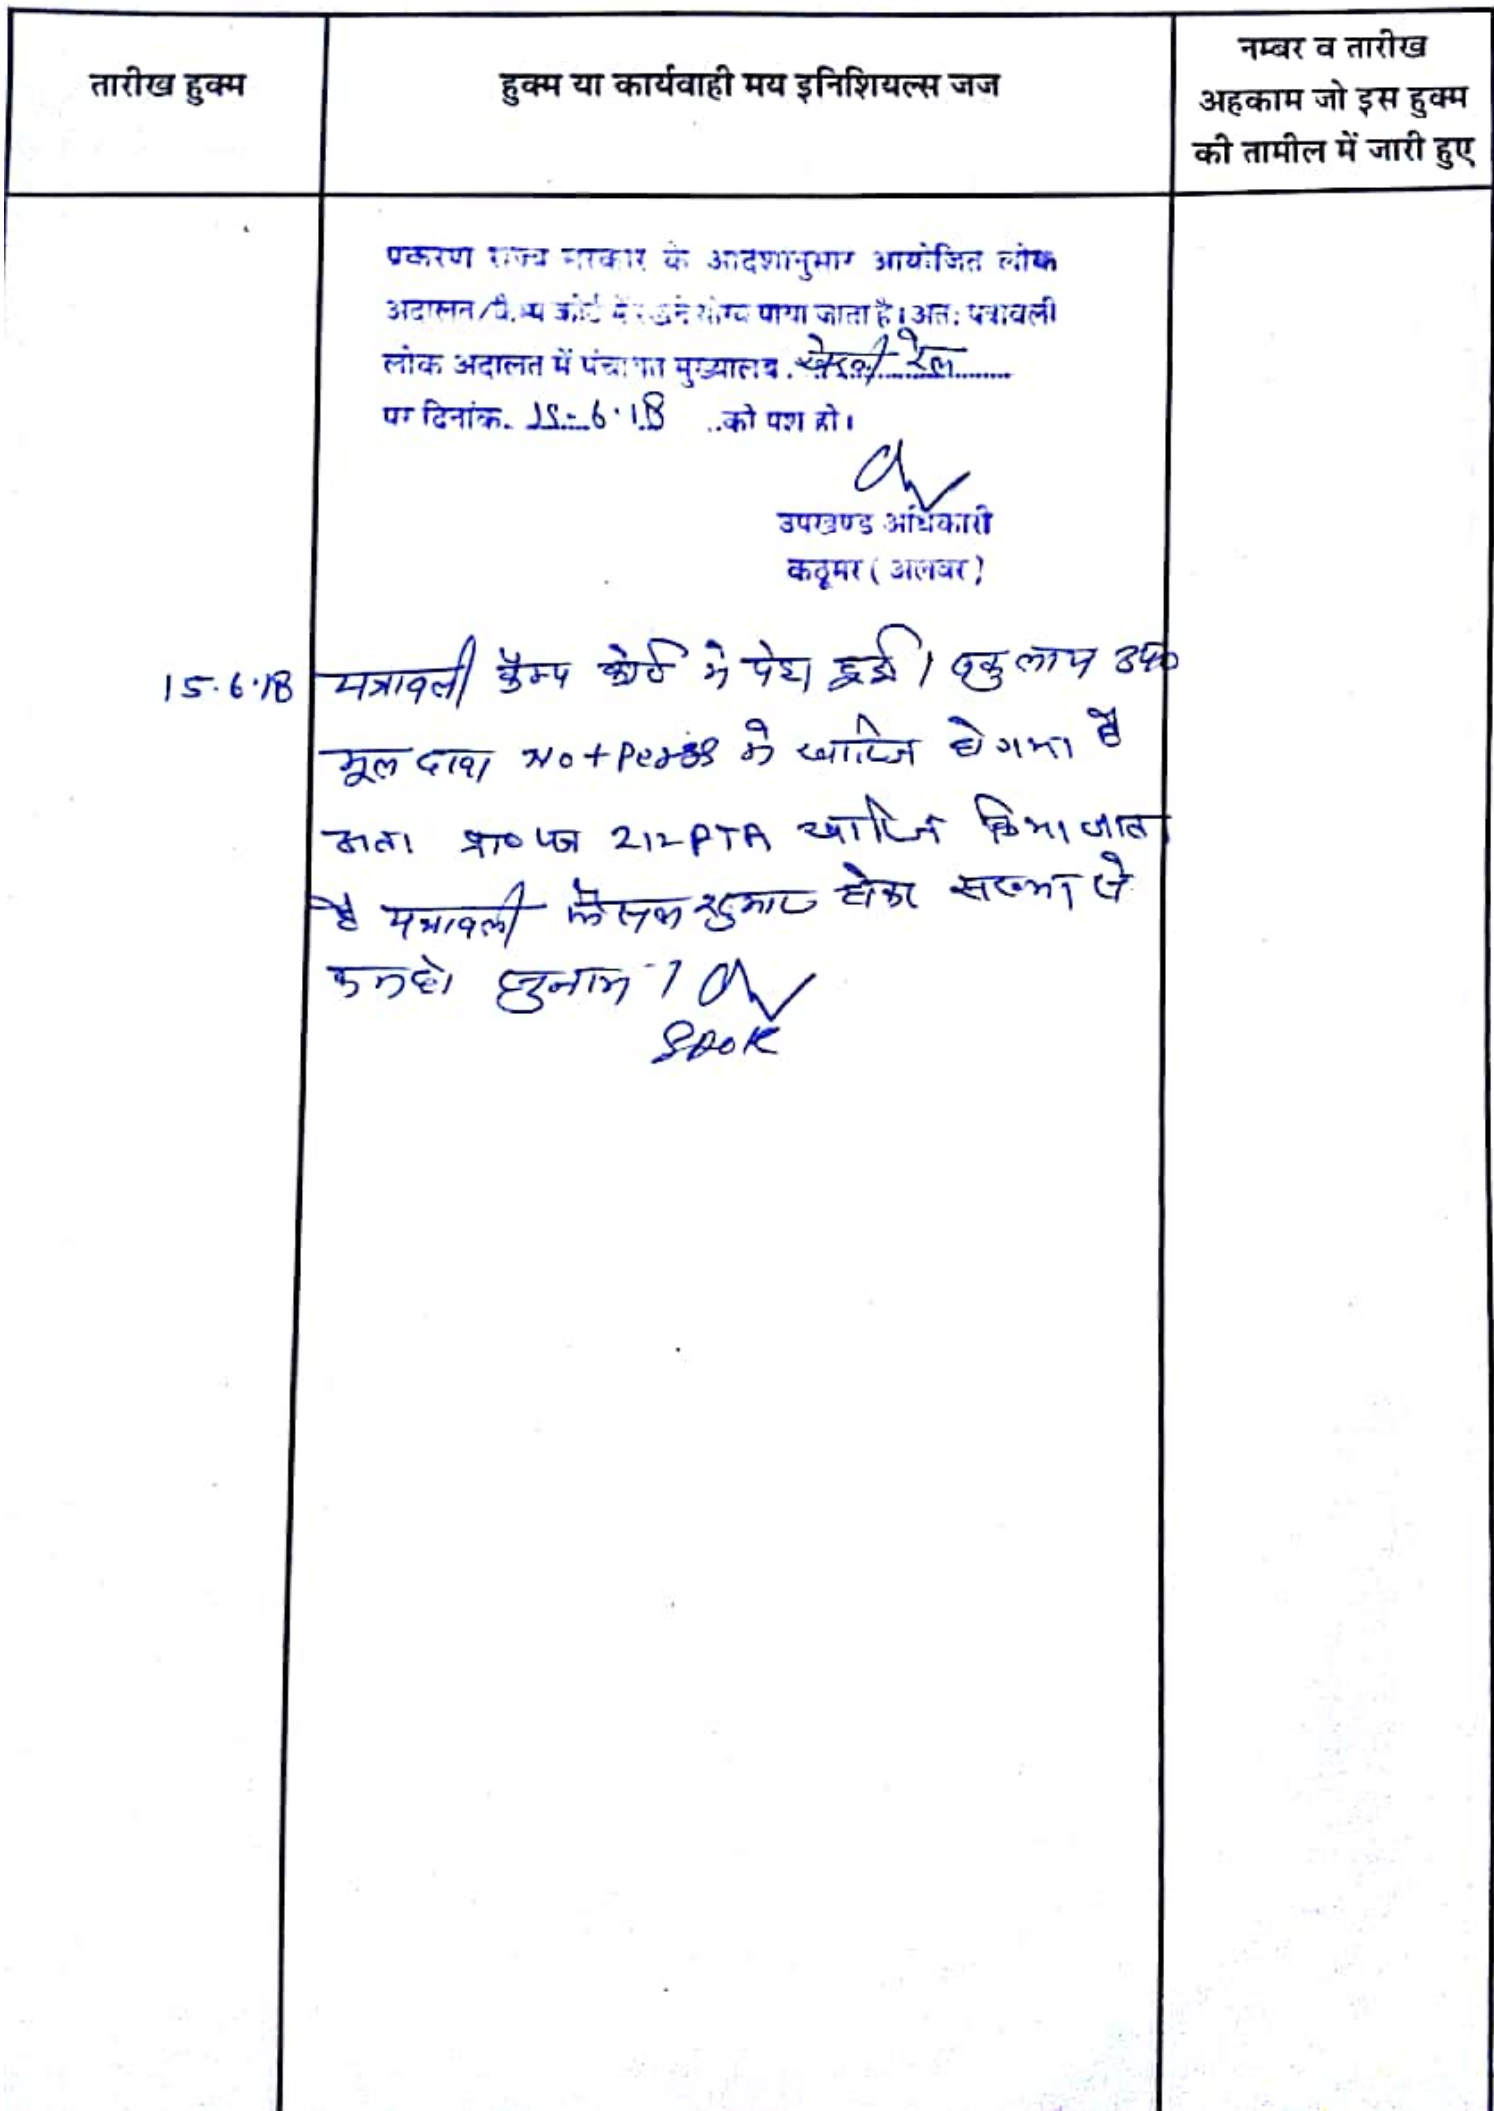 तारीख हुक्म
हुक्म या कार्यवाही मय इनिशियल्स जज
नम्बर व तारीख
अहकाम जो इस हुक्म
की तामील में जारी हुए
प्रकरण राज्य सरकार के आदेशानुसार आयोजित लोक
अदालत/कैम्प कोर्ट में रखने योग्य पाया जाता है। अतः पत्रावली
लोक अदालत में पंचायत मुख्यालय खेरली रेल
पर दिनांक. 15-6-18 ..को पेश हो।
उपखण्ड अधिकारी
कठूमर (अलवर)
15.6.18 पत्रावली कैम्प कोर्ट में पेश हुई। वकुलाय उप०
मूल दावा Not Press में खारिज हो गया है
अतः प्रा० पत्र 212 RTA खारिज किया जाता
है पत्रावली फैसल शुमार होकर संख्या से
कम हो।
SDOK